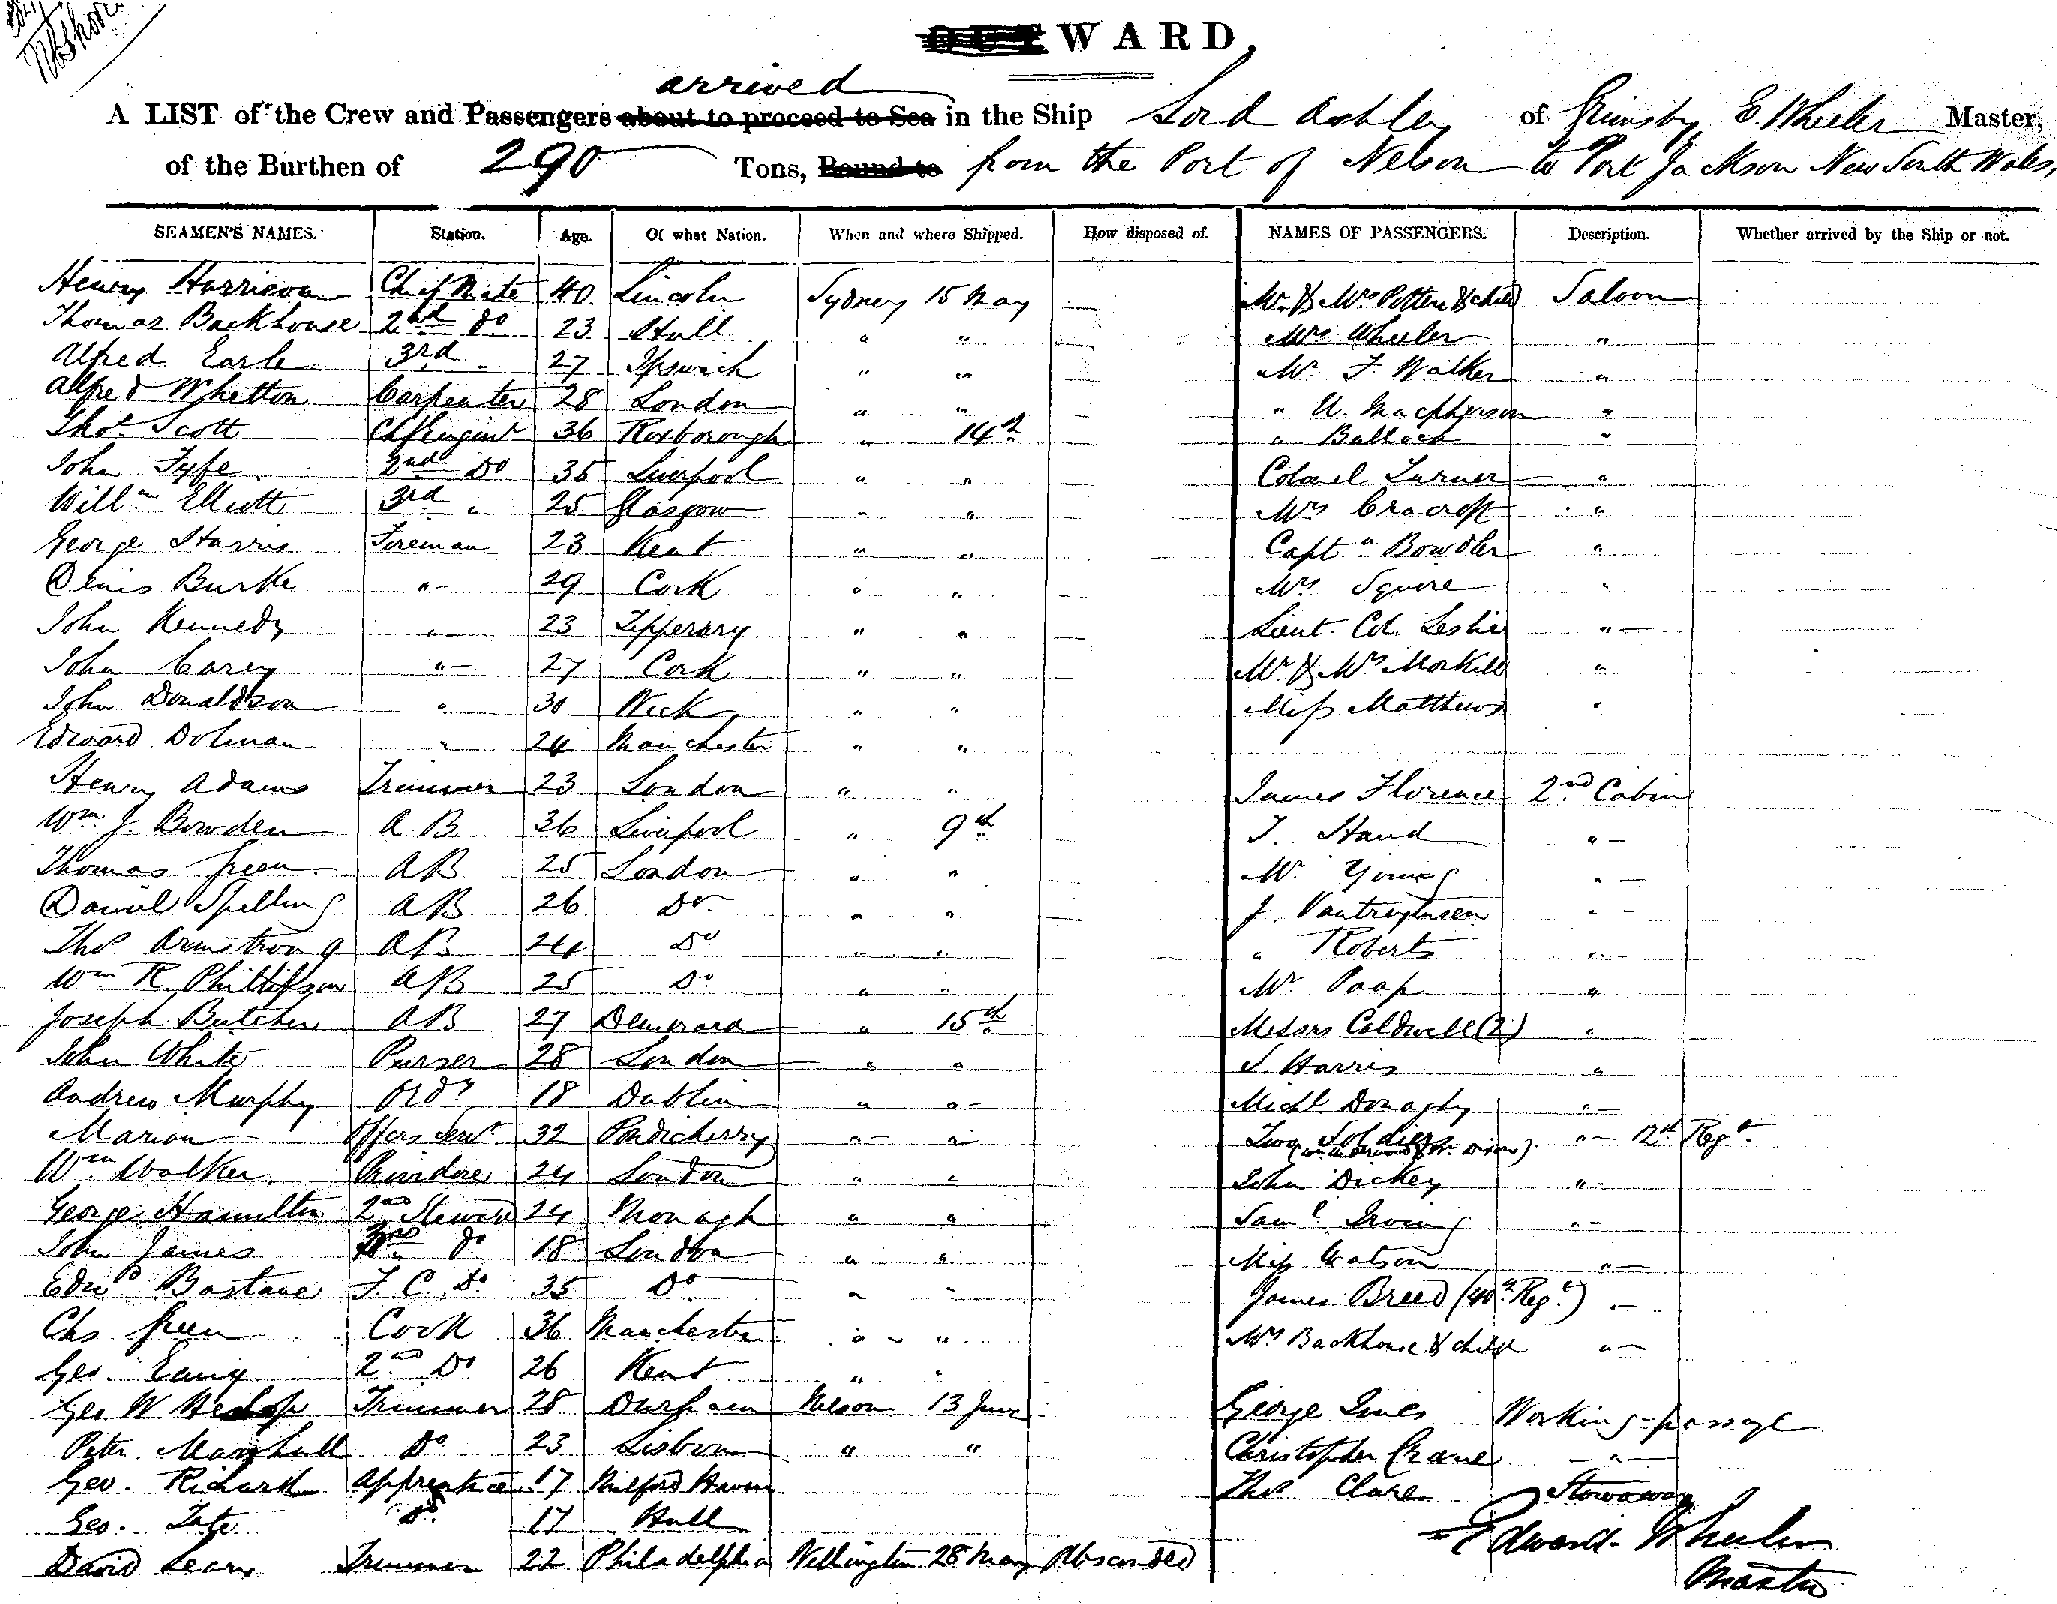 WARD,
arrived
A LIST of the Crew and Passengers about to proceed to Sea in the Ship Lord Ashley of Grimsby E. Wheeler Master,
of the Burthen of 290 Tons, Bound to from the Port of Nelson to Port Jackson New South Wales,
SEAMEN'S NAMES. Station. Age. Of what Nation. When and where Shipped. How disposed of. NAMES OF PASSENGERS. Description. Whether arrived by the Ship or not.
Henry Harrison Chief Mate 40 Lincoln Sydney 15 May Mr & Mrs Potter & child Saloon
Thomas Backhouse 2nd Do 23 Hull " " Mrs Wheeler "
Alfred Earle 3rd 27 Ipswich " " Mr F. Walker "
Alfred Whetton Carpenter 28 London " " " Macpherson "
Thos Scott Ch Engineer 36 Roxborough " 14th " Bullock "
John Fyfe 2nd Do 35 Liverpool " " Colonel Turner "
Willm Elliott 3rd " 25 Glasgow " " Mrs Cracroft "
George Harris Foreman 23 Kent " " Captn Bowdler "
Denis Burke " 29 Cork " " Mrs Squire "
John Kennedy " 23 Tipperary " " Lieut. Col. Leslie "
John Carey " 27 Cork " " Mr & Mrs Morkill "
John Donaldson " 30 Wick " " Miss Matthews "
Edward Dolman " 24 Manchester " "
Henry Adams Trimmer 23 London " " James Florence 2nd Cabin
Wm J. Bowden AB 36 Liverpool " 9th T. Hand "
Thomas Green AB 25 London " " Mr Young "
Daniel Spelling AB 26 Do " " J. "
Thos Armstrong AB 24 Do " " " Roberts "
Wm R. Phillipson AB 25 Do " " Mr Paap "
Joseph Butcher AB 27 Demerara " 15th Messrs Caldwell (2) "
John White Purser 28 London " " S Harris "
Andrew Murphy Ordy 18 Dublin " " Michl Donaghy "
Marion Offers Servt 32 Pondicherry " " Two Soldiers " 12th Regt
Wm Walker Providore 24 London " " John Dickey "
George Hamilton 2nd Steward 24 Monagh " " Saml Irving "
John James 3rd Do 18 London " " Miss Watson "
Edwd Bastane F. C. Do 35 Do " " James Breed (40th Regt) "
Chs Green Cook 36 Manchester " " Mrs Backhouse & child "
Geo. 2nd Do 26 Kent " "
Geo W Heslop Trimmer 28 Durham Nelson 13 June George Innes Working passage
Peter Marshall Do 23 Lisbon " " Christopher Crane "
Geo. Richard Apprentice 17 Milford Haven Thos Clare Stowaway
Geo. Tate Do 17 Hull
David Leary Trimmer 22 Philadelphia Wellington 28 May Absconded
Edward Wheeler
Master